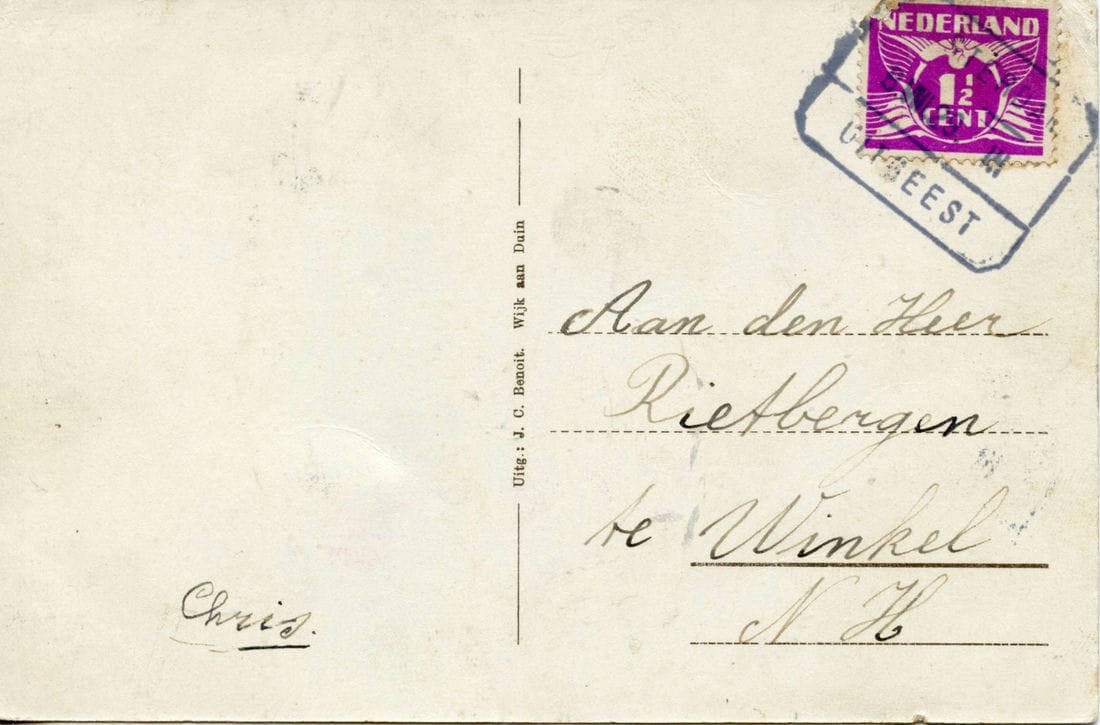 NEDERLAND
1½
CENT
UITGEEST
Uitg.: J. C. Benoit. Wijk aan Duin
Aan den Heer
Rietbergen
te Winkel
N H
Chris.